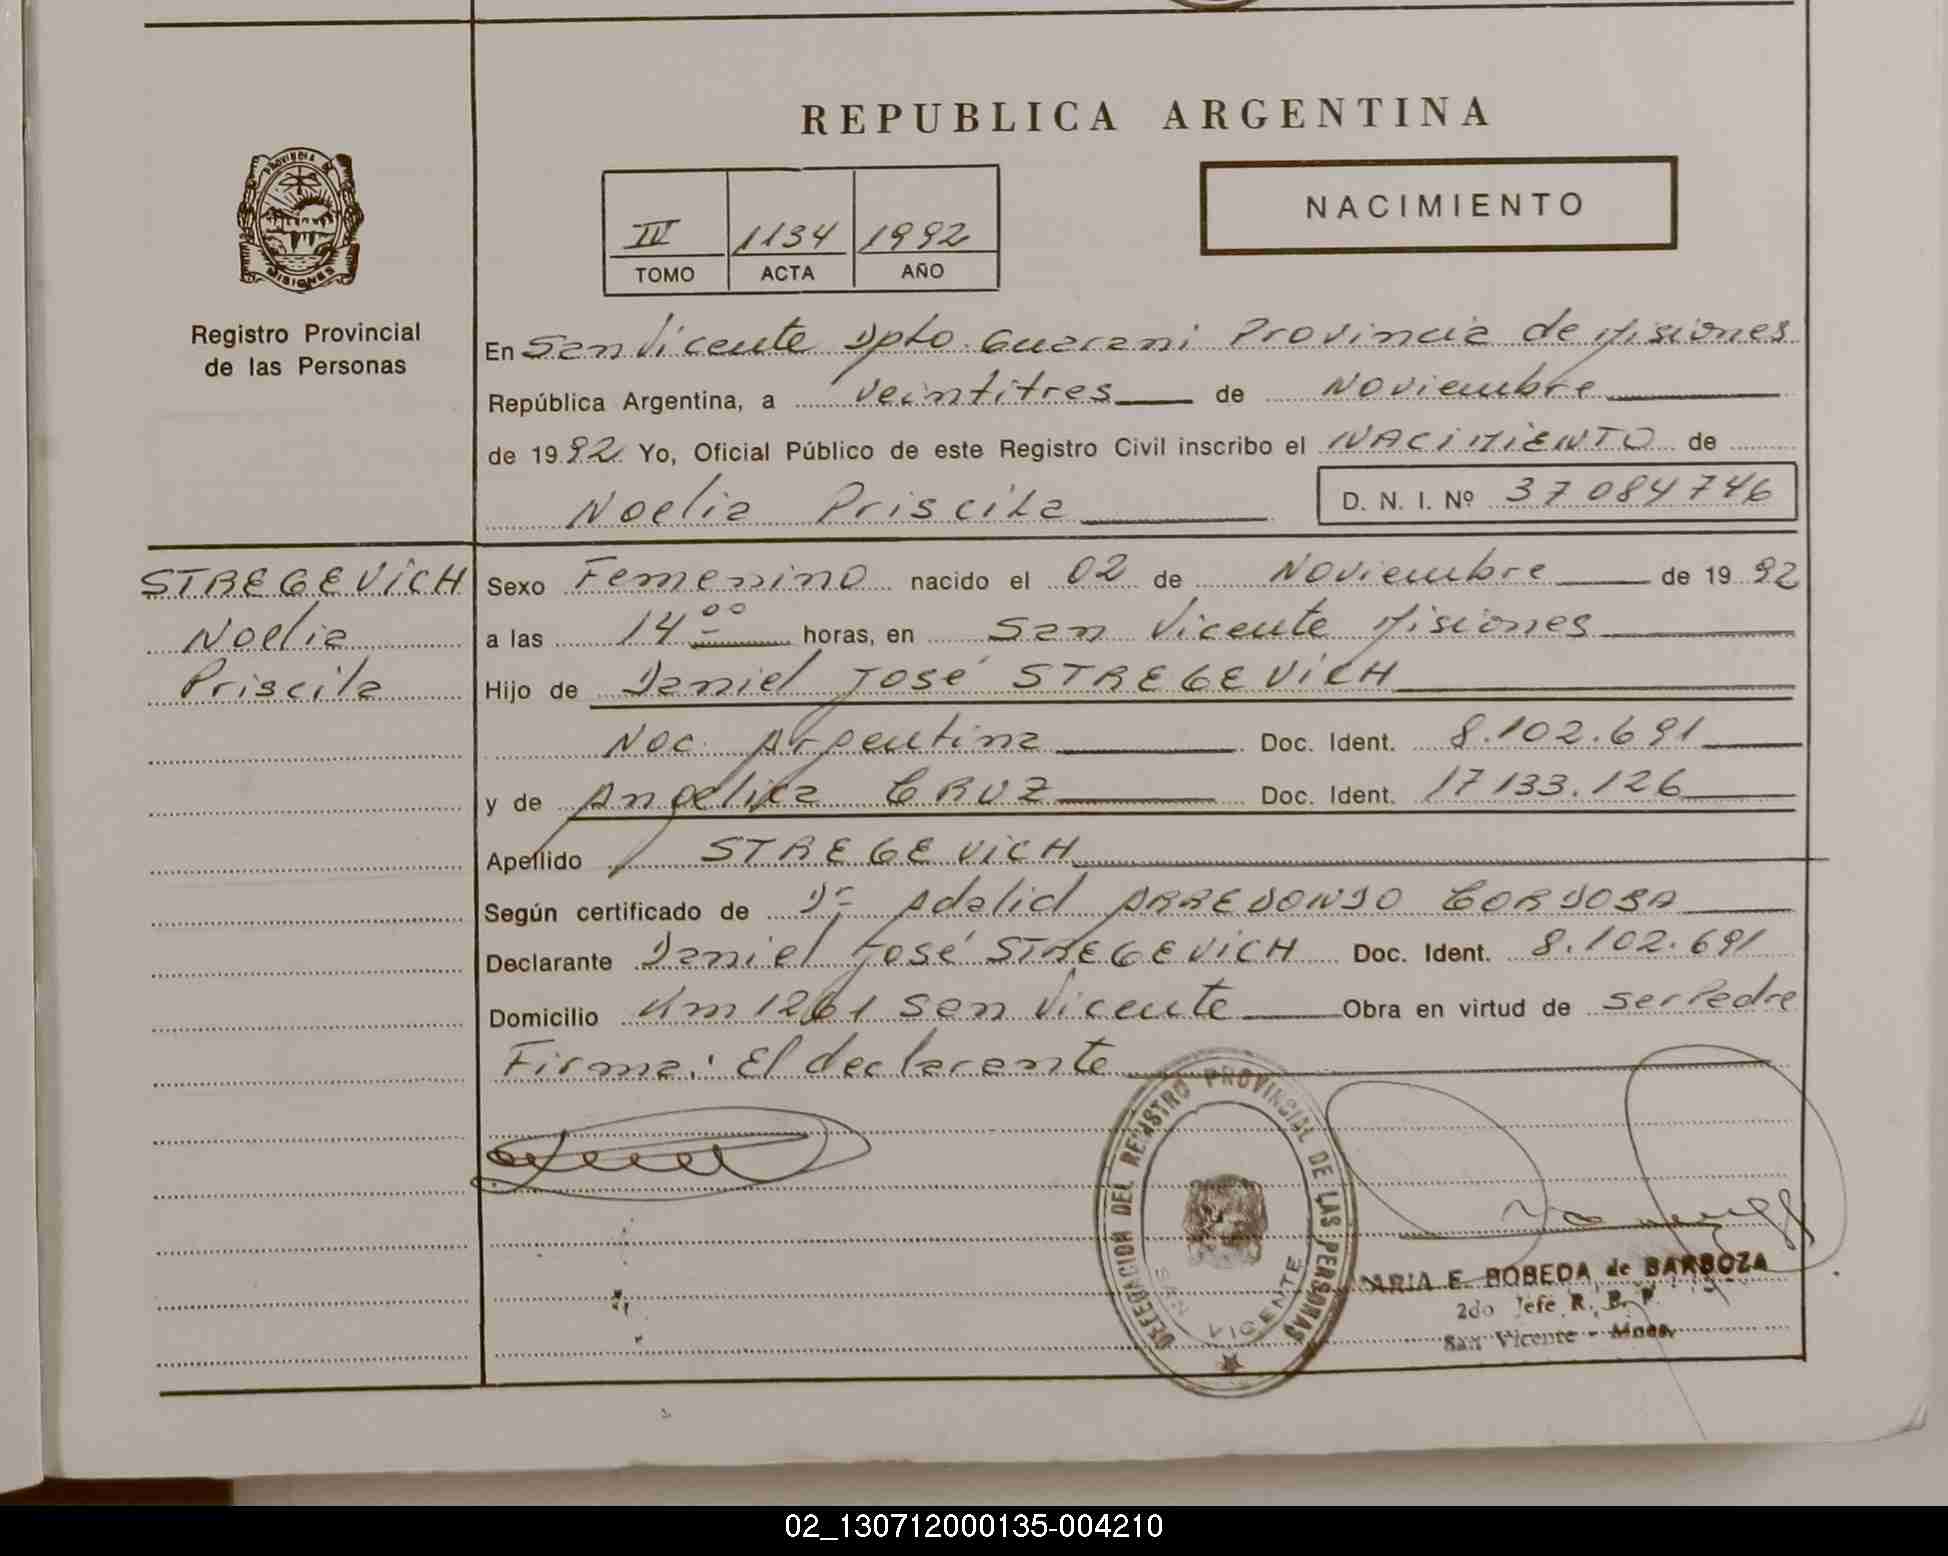 REPUBLICA ARGENTINA
PROVINCIA DE
MISIONES
Registro Provincial
de las Personas
IV 1134 1992
TOMO ACTA AÑO
NACIMIENTO
En San Vicente Dpto. Guarani Provincia de Misiones
República Argentina, a veintitres de Noviembre
de 1992 Yo, Oficial Público de este Registro Civil inscribo el NACIMIENTO de
Noelia Priscila D. N. I. Nº 37084746
STREGEVICH
Noelia
Priscila
Sexo Femenino nacido el 02 de Noviembre de 1992
a las 14 00 horas, en San Vicente Misiones
Hijo de Daniel José STREGEVICH
Nac. Argentina Doc. Ident. 8.102.691
y de Angelica CRUZ Doc. Ident. 17133.126
Apellido STREGEVICH
Según certificado de Dr Adalid ARREDONDO CORDOBA
Declarante Daniel José STREGEVICH Doc. Ident. 8.102.691
Domicilio Km 1261 San Vicente Obra en virtud de ser Padre
Firma: El declarante
DELEGACION DEL REGISTRO PROVINCIAL DE LAS PERSONAS
SAN VICENTE
MARIA E. BOBEDA de BARBOZA
2do Jefe R. P. P.
San Vicente - Mnes.
02_130712000135-004210